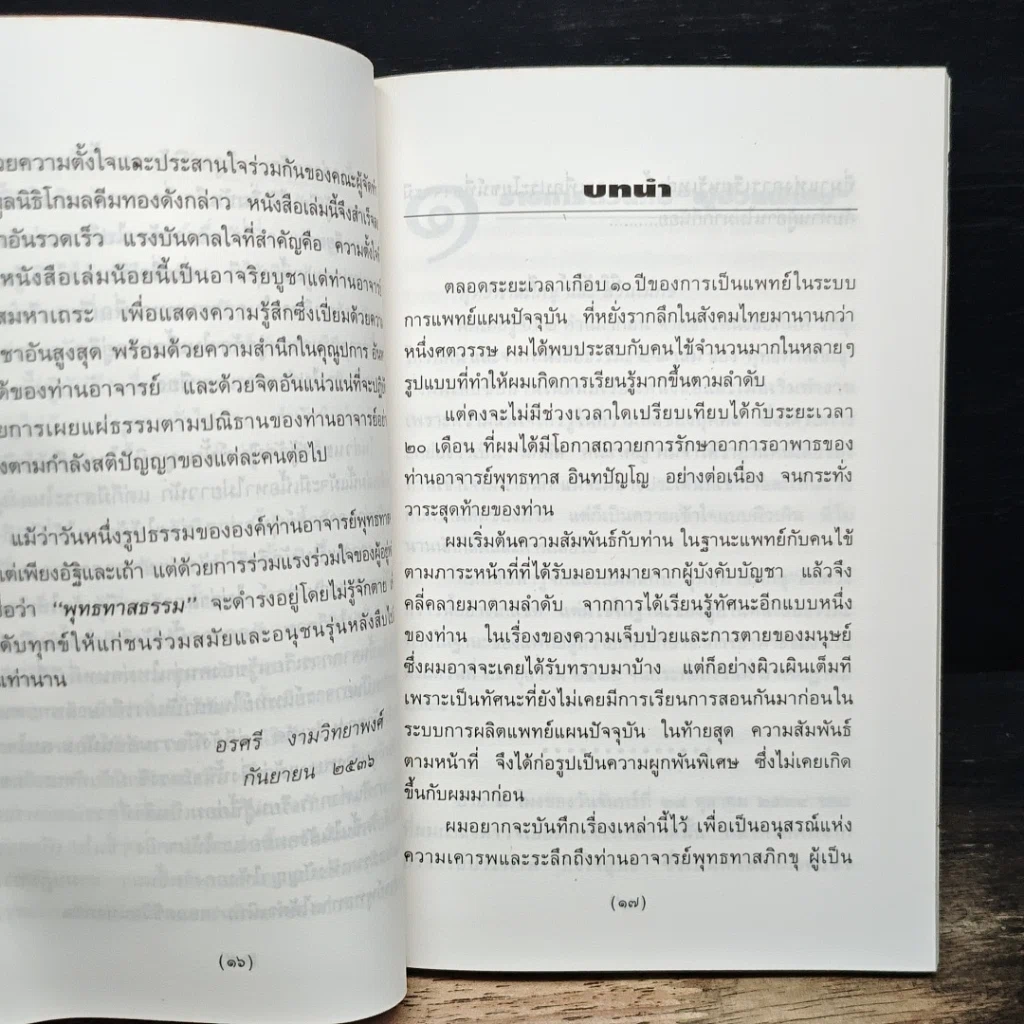 ยความตั้งใจและประสานใจร่วมกันของคณะผู้จัดทำ
มูลนิธิโกมลคีมทองดังกล่าว หนังสือเล่มนี้จึงสำเร็จลง
อันรวดเร็ว แรงบันดาลใจที่สำคัญคือ ความตั้งใจ
หนังสือเล่มน้อยนี้เป็นอาจริยบูชาแด่ท่านอาจารย์
มหาเถระ เพื่อแสดงความรู้สึกซึ่งเปี่ยมด้วยความ
ชาอันสูงสุด พร้อมด้วยความสำนึกในคุณูปการ อัน
ได้ของท่านอาจารย์ และด้วยจิตอันแน่วแน่ที่จะปฏิบัติ
ยการเผยแผ่ธรรมตามปณิธานของท่านอาจารย์อย่าง
ตามกำลังสติปัญญาของแต่ละคนต่อไป
แม้ว่าวันหนึ่งรูปธรรมขององค์ท่านอาจารย์พุทธทาส
แต่เพียงอัฐิและเถ้า แต่ด้วยการร่วมแรงร่วมใจของผู้อยู่
ว่า “พุทธทาสธรรม” จะดำรงอยู่โดยไม่รู้จักตาย
ดับทุกข์ให้แก่ชนร่วมสมัยและอนุชนรุ่นหลังสืบไป
เท่านาน
อรศรี งามวิทยาพงศ์
กันยายน ๒๕๓๖
(๑๖)
บทนำ
ตลอดระยะเวลาเกือบ ๑๐ ปีของการเป็นแพทย์ในระบบ
การแพทย์แผนปัจจุบัน ที่หยั่งรากลึกในสังคมไทยมานานกว่า
หนึ่งศตวรรษ ผมได้พบประสบกับคนไข้จำนวนมากในหลายๆ
รูปแบบที่ทำให้ผมเกิดการเรียนรู้มากขึ้นตามลำดับ
แต่คงจะไม่มีช่วงเวลาใดเปรียบเทียบได้กับระยะเวลา
๒๐ เดือน ที่ผมได้มีโอกาสถวายการรักษาอาการอาพาธของ
ท่านอาจารย์พุทธทาส อินทปัญโญ อย่างต่อเนื่อง จนกระทั่ง
วาระสุดท้ายของท่าน
ผมเริ่มต้นความสัมพันธ์กับท่าน ในฐานะแพทย์กับคนไข้
ตามภาระหน้าที่ที่ได้รับมอบหมายจากผู้บังคับบัญชา แล้วจึง
คลี่คลายมาตามลำดับ จากการได้เรียนรู้ทัศนะอีกแบบหนึ่ง
ของท่าน ในเรื่องของความเจ็บป่วยและการตายของมนุษย์
ซึ่งผมอาจจะเคยได้รับทราบมาบ้าง แต่ก็อย่างผิวเผินเต็มที
เพราะเป็นทัศนะที่ยังไม่เคยมีการเรียนการสอนกันมาก่อนใน
ระบบการผลิตแพทย์แผนปัจจุบัน ในท้ายสุด ความสัมพันธ์
ตามหน้าที่ จึงได้ก่อรูปเป็นความผูกพันพิเศษ ซึ่งไม่เคยเกิด
ขึ้นกับผมมาก่อน
ผมอยากจะบันทึกเรื่องเหล่านี้ไว้ เพื่อเป็นอนุสรณ์แห่ง
ความเคารพและระลึกถึงท่านอาจารย์พุทธทาสภิกขุ ผู้เป็น
(๑๗)